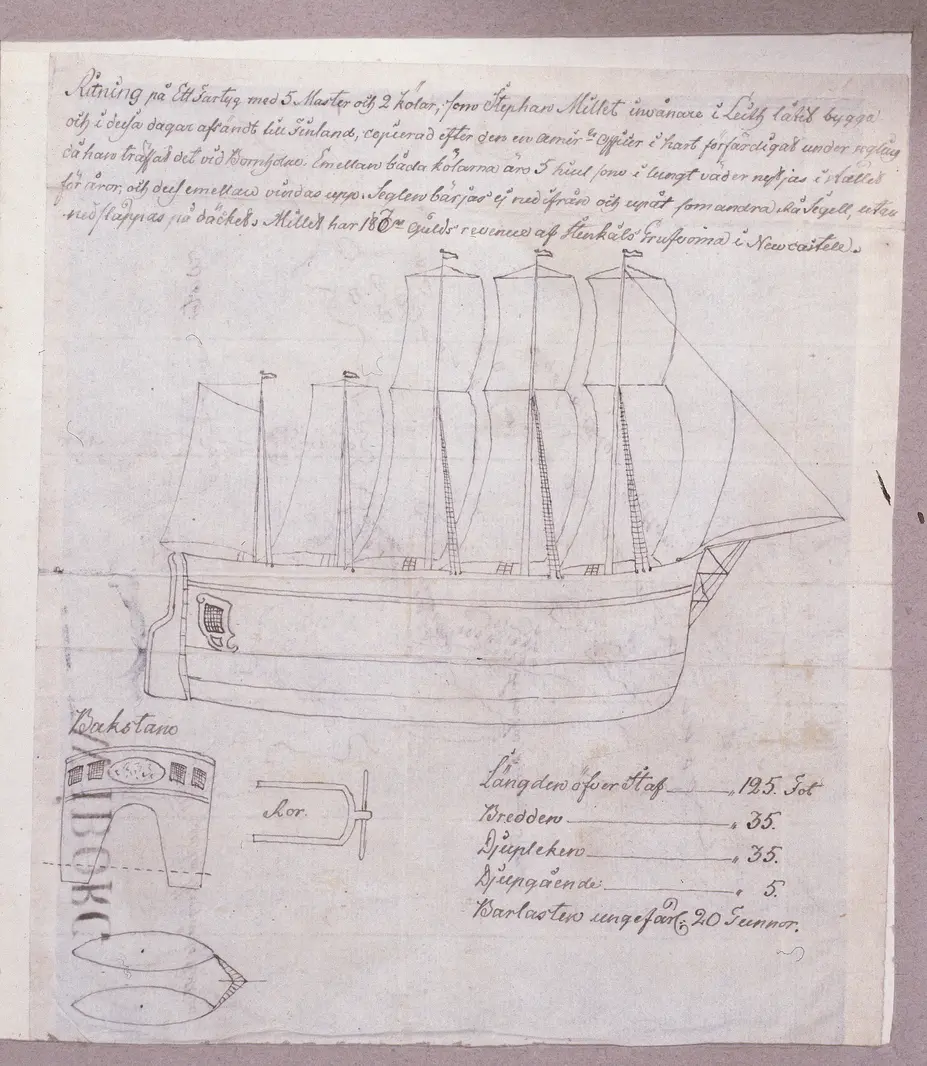 Ritning på Ett Fartyg med 5 Master och 2 kölar, som Stephan Millet invånare i Leith låtit bygga
och i dessa dagar afsändt till Finland, copierad efter den en Officier i hast förfärdigat under segling
då han träffat det vid Emellan båda kölarna äro 5 hiul som i lungt väder nyttjas i stället
för åror, och dess emellan vindas upp. Seglen bärjas ej nedifrån och upåt som andra Rå Segell, utan
nedsläppas på däcket. Millet har revenue af Stenkåls Grufvorna i Newcastele.
Bakstam
Ror.
Längden öfver Staf 125. Fot
Bredden " 35.
Djupleken " 35.
Djupgående " 5.
Barlasten ungefärl: 20 Tunnor.